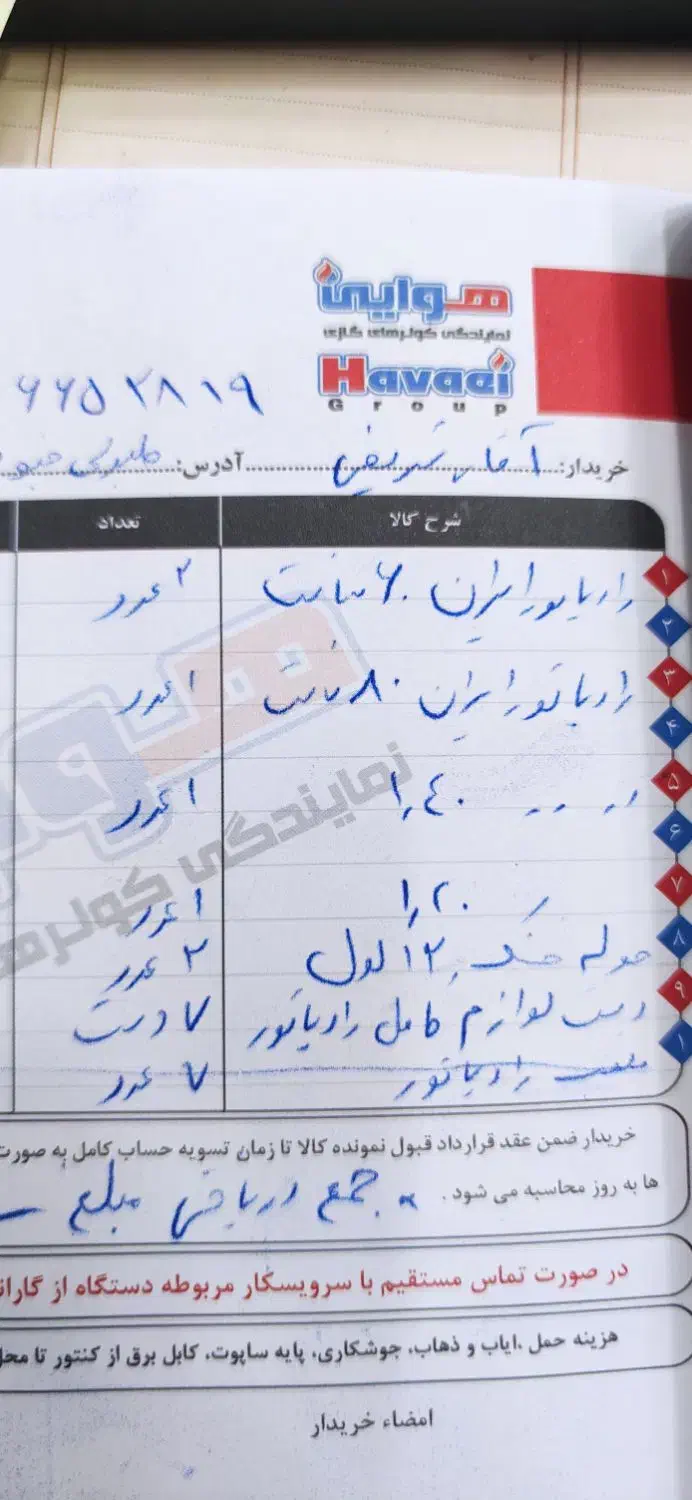 هوایی
نمایندگی کولرهای گازی
Havaei
Group
۶۶۵۲۸۱۹
خریدار: آقای شریفی آدرس:
شرح کالا تعداد
۱ رادیاتور ایران ۶۰ سانت ۲ عدد
۲
۳ رادیاتور ایران ۸۰ سانت ۱ عدد
۴
۵ ۱٫۴۰ ۱ عدد
۶
۷ ۱٫۲۰ ۱ عدد
۸ حوله خشک ۲ عدد
۹ دست لوازم کامل رادیاتور ۷ دست
۱ رادیاتور ۷ عدد
نمایندگی کولرها
خریدار ضمن عقد قرارداد قبول نمونده کالا تا زمان تسویه حساب کامل به صورت
ها به روز محاسبه می شود . جمع دریافتی مبلغ
در صورت تماس مستقیم با سرویسکار مربوطه دستگاه از گارانت
هزینه حمل ،ایاب و ذهاب، جوشکاری، پایه ساپوت، کابل برق از کنتور تا محل
امضاء خریدار